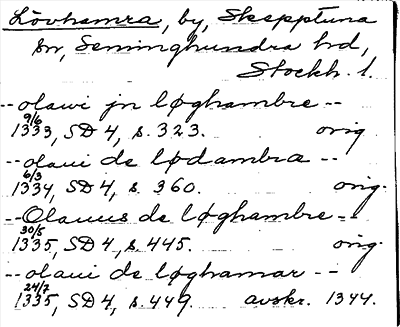 Lövhamra, by, Skepptuna
sn, Seminghundra hd,
Stockh. l.
-- olawi jn løghambre --
9/6 1333, SD 4, s. 323. orig
-- olaui de lødambra --
6/3 1334, SD 4, s. 360. orig.
-- Olauus de løghambre --
30/5 1335, SD 4, s. 445. orig.
-- olaui de løghamar --
24/7 1335, SD 4, s. 449. avskr. 1344.